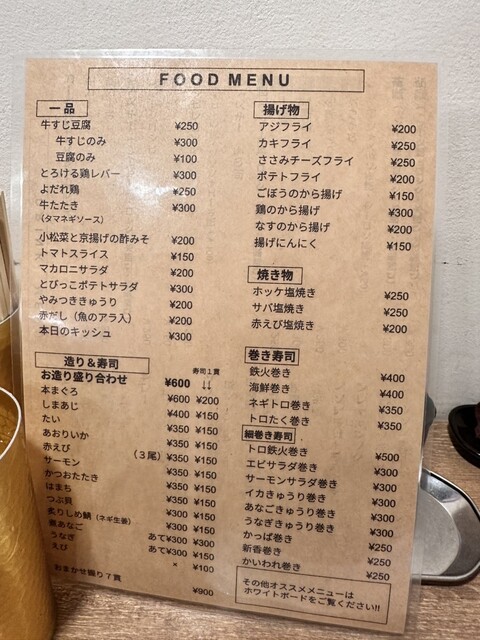 FOOD MENU
一品
牛すじ豆腐 ¥250
牛すじのみ ¥300
豆腐のみ ¥100
とろける鶏レバー ¥300
よだれ鶏 ¥250
牛たたき ¥300
(タマネギソース)
小松菜と京揚げの酢みそ ¥200
トマトスライス ¥150
マカロニサラダ ¥200
とびっこポテトサラダ ¥300
やみつききゅうり ¥200
赤だし（魚のアラ入） ¥200
本日のキッシュ ¥300
造り＆寿司 寿司１貫
お造り盛り合わせ ¥600 ↓↓
本まぐろ ¥600 ¥200
しまあじ ¥400 ¥150
たい ¥350 ¥150
あおりいか ¥350 ¥150
赤えび （３尾） ¥350 ¥150
サーモン ¥350 ¥150
かつおたたき ¥350 ¥150
はまち ¥350 ¥150
つぶ貝 ¥350 ¥150
炙りしめ鯖（ネギ生姜） ¥300 ¥150
煮あなご あて¥300 ¥300
うなぎ あて¥300 ¥150
えび × ¥100
おまかせ握り７貫 ¥900
揚げ物
アジフライ ¥200
カキフライ ¥250
ささみチーズフライ ¥250
ポテトフライ ¥200
ごぼうのから揚げ ¥150
鶏のから揚げ ¥300
なすのから揚げ ¥200
揚げにんにく ¥150
焼き物
ホッケ塩焼き ¥250
サバ塩焼き ¥250
赤えび塩焼き ¥200
巻き寿司
鉄火巻き ¥400
海鮮巻き ¥400
ネギトロ巻き ¥350
トロたく巻き ¥350
細巻き寿司
トロ鉄火巻き ¥500
エビサラダ巻き ¥300
サーモンサラダ巻き ¥300
イカきゅうり巻き ¥300
あなごきゅうり巻き ¥300
うなぎきゅうり巻き ¥300
かっぱ巻き ¥250
新香巻き ¥250
かいわれ巻き ¥250
その他オススメメニューは
ホワイトボードをご覧ください!!